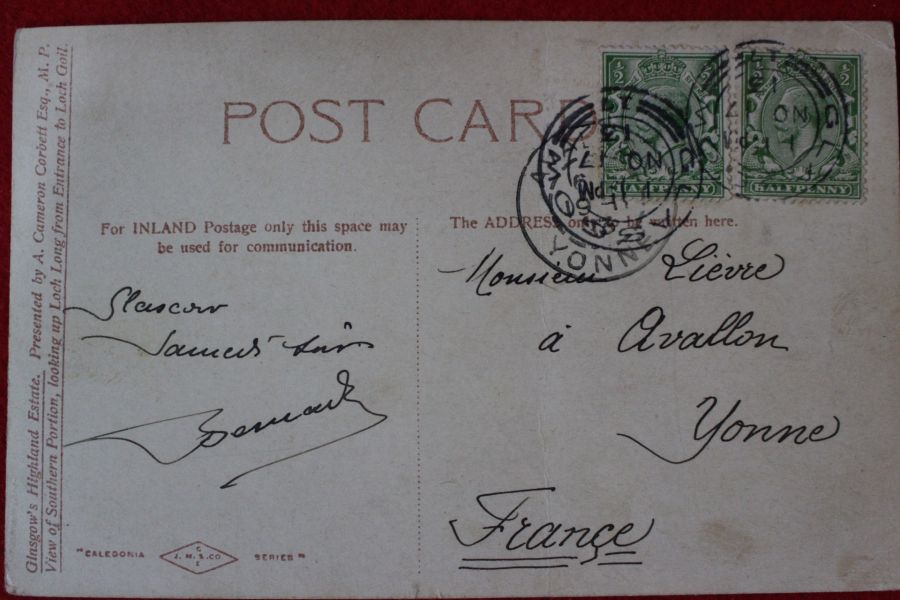 POST CARD
For INLAND Postage only this space may
be used for communication.
The ADDRESS only to be written here.
Glasgow's Highland Estate. Presented by A. Cameron Corbett Esq., M. P.
View of Southern Portion, looking up Loch Long from Entrance to Loch Goil.
½ ½
HALFPENNY
½ ½
HALFPENNY
AVALLON
YONNE
Glascow
Samedi soir
Bernard
Monsieur Lièvre
à Avallon
Yonne
Françe
"CALEDONIA
J. M. & CO
SERIES"